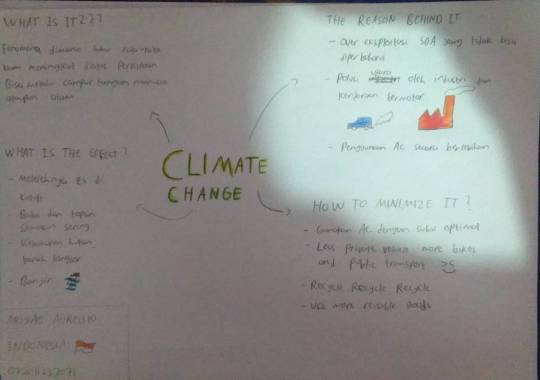 WHAT IS IT???
Fenomena dimana suhu rata-rata
bumi meningkat diatas
Bisa campur tangan manusia
ataupun alam
WHAT IS THE EFFECT?
- Melelehnya es di
kutub
- Badai dan topan
semakin sering
- Kebakaran hutan,
tanah longsor
- Banjir
INDONESIA
CLIMATE
CHANGE
THE REASON BEHIND IT
- Over eksploitasi SDA yang tidak bisa
diperbaharui
- Polusi udara oleh industri dan
kendaraan bermotor
- Penggunaan AC secara berlebihan
HOW TO MINIMIZE IT?
- Gunakan AC dengan suhu optimal
- Less private vehicle more bikes
and public transport
- Recycle Recycle Recycle
- Use more reusable goods